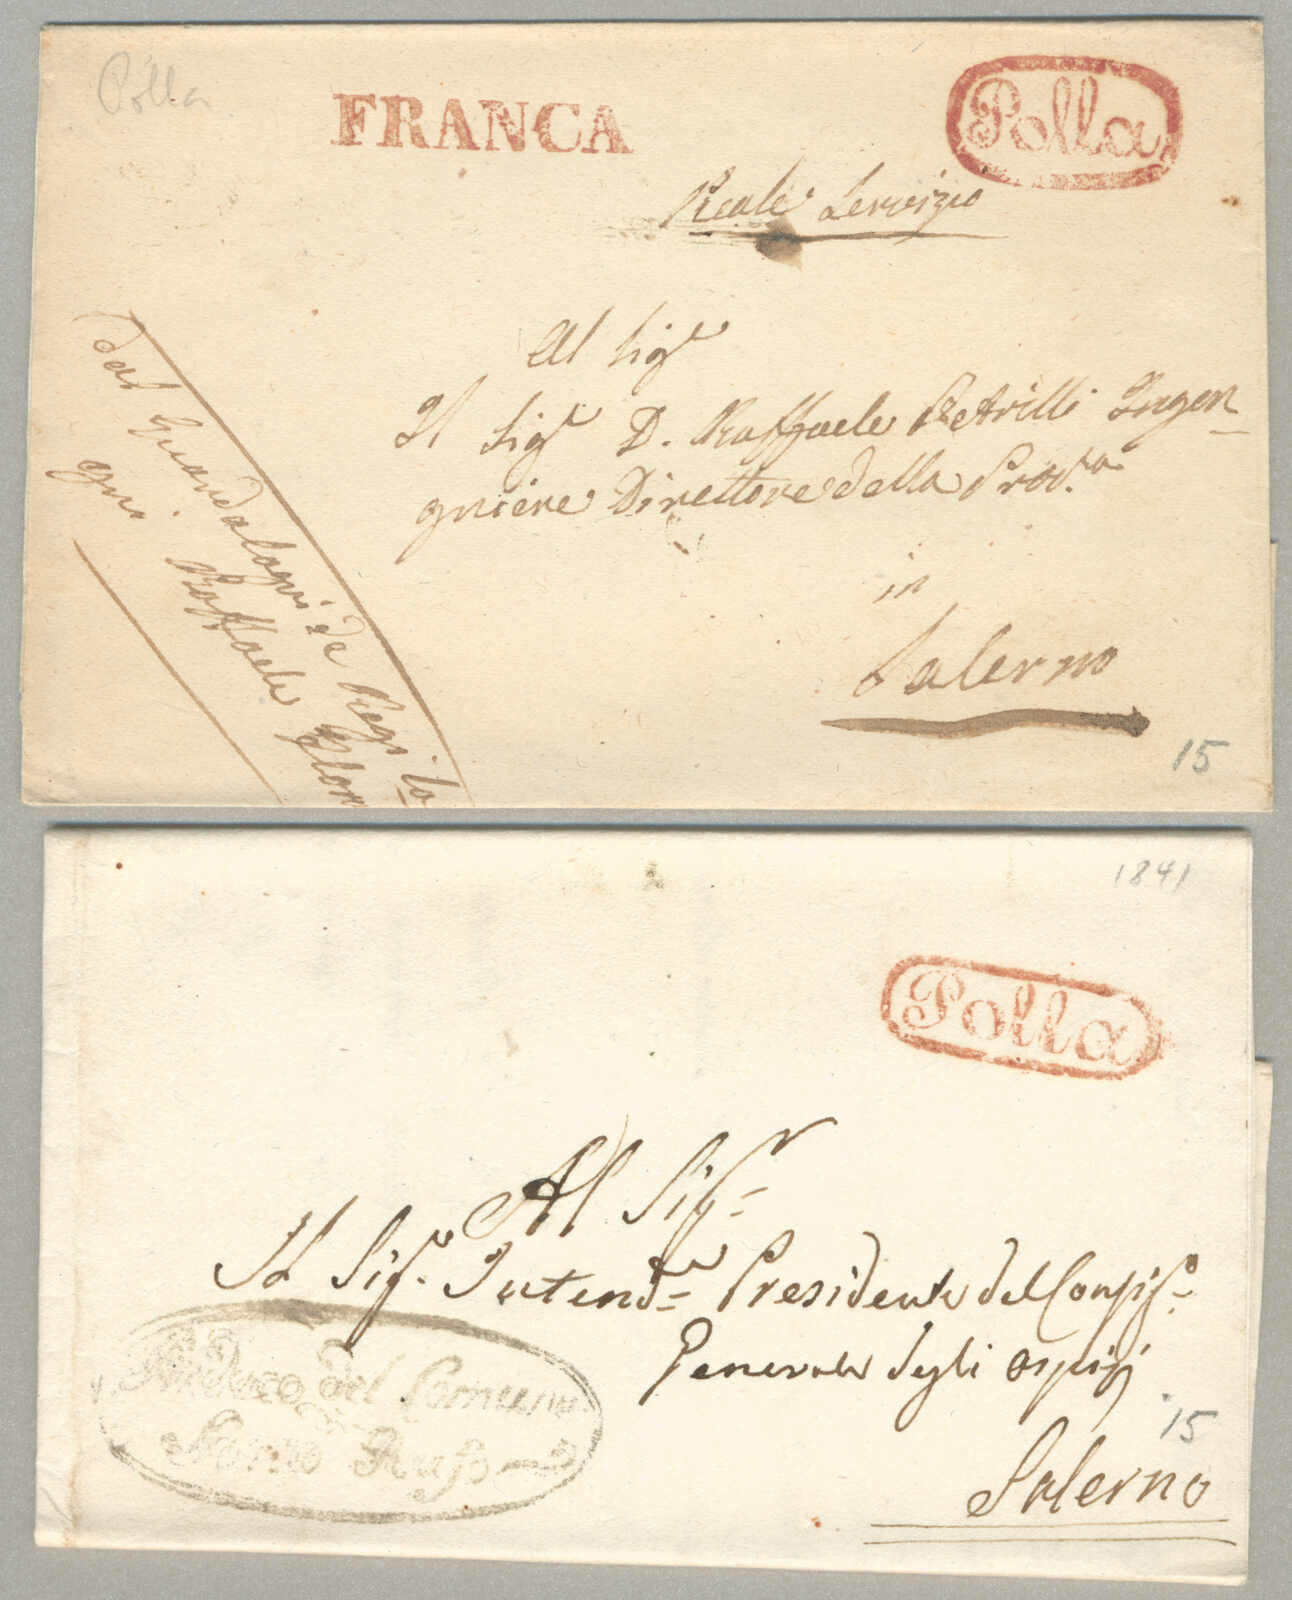 Polla
FRANCA
Polla
Reale Servizio
Al Sigr
Il Sigr D. Raffaele Petrilli Ingen
gniere Direttore della Prov.a
in
Salerno
Dal Guardalagni de Regi la
gni Raffaele
15
1841
Polla
Al Sigr
Il Sigr Intende Presidente del Consigo
Generale degli Ospizj
15
Salerno
Sindaco del Comune